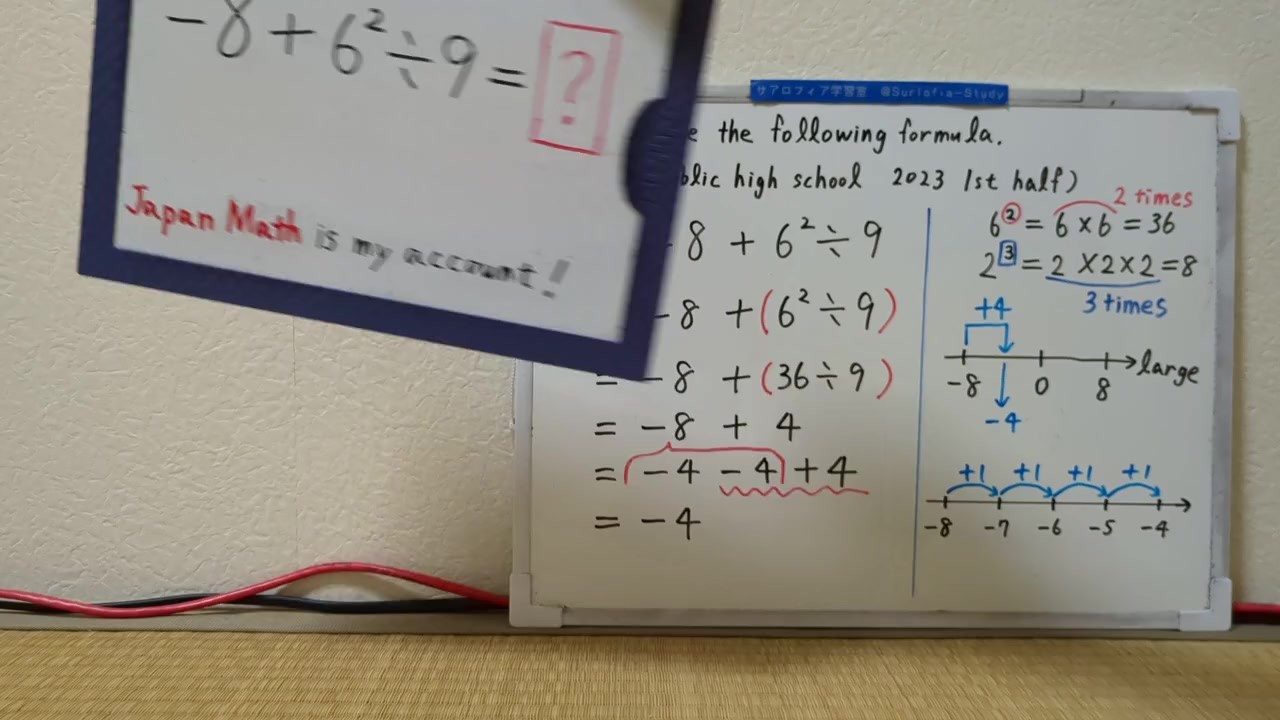 -8+6²÷9=?
Japan Math is my account!
サアロフィア学習室 @Surlofia-Study
e the following formula.
blic high school 2023 1st half)
8 + 6²÷9
-8 +(6²÷9)
= -8 +(36÷9)
= -8 + 4
= -4 -4 +4
= -4
2 times
6² = 6×6 = 36
2³ = 2×2×2 = 8
3 times
+4
large
-8 0 8
-4
+1 +1 +1 +1
-8 -7 -6 -5 -4